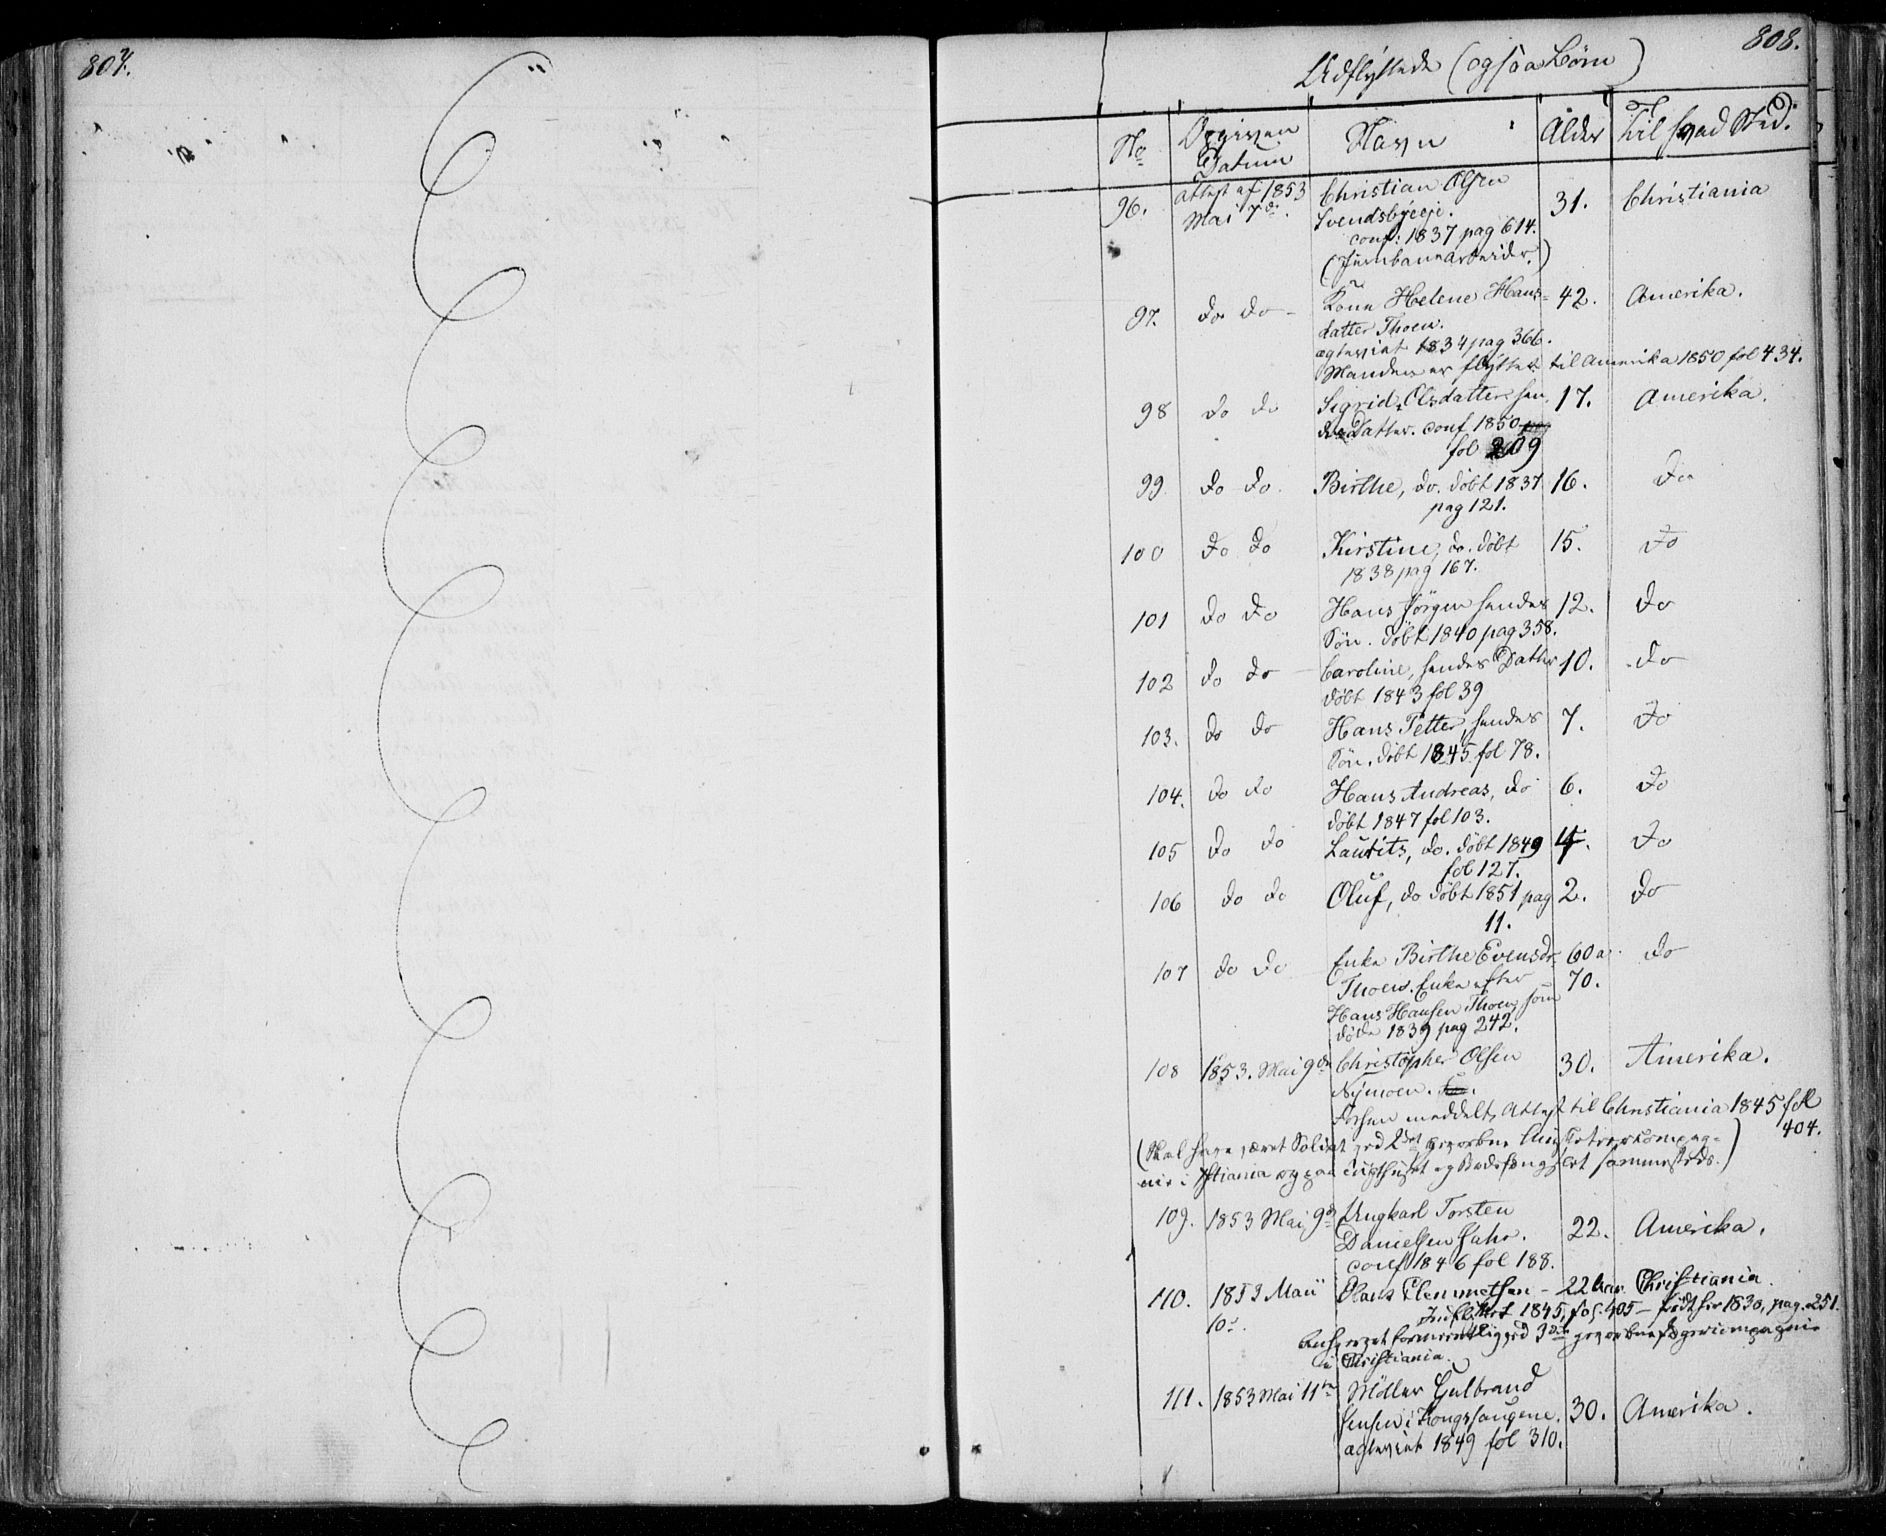 807.
808.
Udflyttede (ogsaa Børn)
No Opgiven Datum Navn Alder Til hvad Sted.
96. Attest af 1853 Christian Olsen 31. Christiania
Mai 7de. Svendsbyeeje.
conf: 1837 pag 614.
(Jernbanearbeider.)
97. do do Kone Helene Hans- 42. Amerika.
datter Thoen.
ægteviet 1834 pag 366.
Manden er flyttet til Amerika 1850 fol 434.
98 do do Sigrid Olsdatter hen 17. Amerika.
des Datter. conf 1850 pag
fol 209
99 do do. Birthe, do. døbt 1837 16. do
pag 121.
100 do do Kirstine, do. døbt 15. do
1838 pag 167.
101 do do Hans Jørgen hendes 12. do
Søn. døbt 1840 pag 358.
102 do do Caroline, hendes Datter 10. do
døbt 1843 fol 39
103. do do Hans Petter, hendes 7. do
Søn. døbt 1845 fol 78.
104. do do Hans Andreas, do 6. do
døbt 1847 fol 103.
105 do do Lauritz, do. døbt 1849 4. do
fol 127.
106 do do Oluf, do døbt 1851 pag 2. do
11.
107 do do Enke Birthe Evensdr 60 a do
Thoen. Enke efter 70.
Hans Hansen Thoen, som
døde 1839 pag 242.
108 1853. Mai 9de Christopher Olsen 30. Amerika.
Nymoen.
Forhen meddelt Attest til Christiania 1845 fol
404.
(Skal have været Soldat ved 2det gevorbne
nie i Xstiania og paa Tugthuset og sammesteds.)
109. 1853 Mai 9de Ungkarl Torsten 22. Amerika.
Danielsen
conf 1846 fol 188.
110. 1853 Maii Olaus Clemmetsen - 22 Aar. Christiania.
10de. Indflyttet 1845, fol. 405 - født her 1830, pag. 251.
ved 3die gevorbne
i Christiania.
111. 1853 Mai 11te Møller Gulbrand 30. Amerika.
Jensen i Kongssaugene.
ægteviet 1849 fol 310.